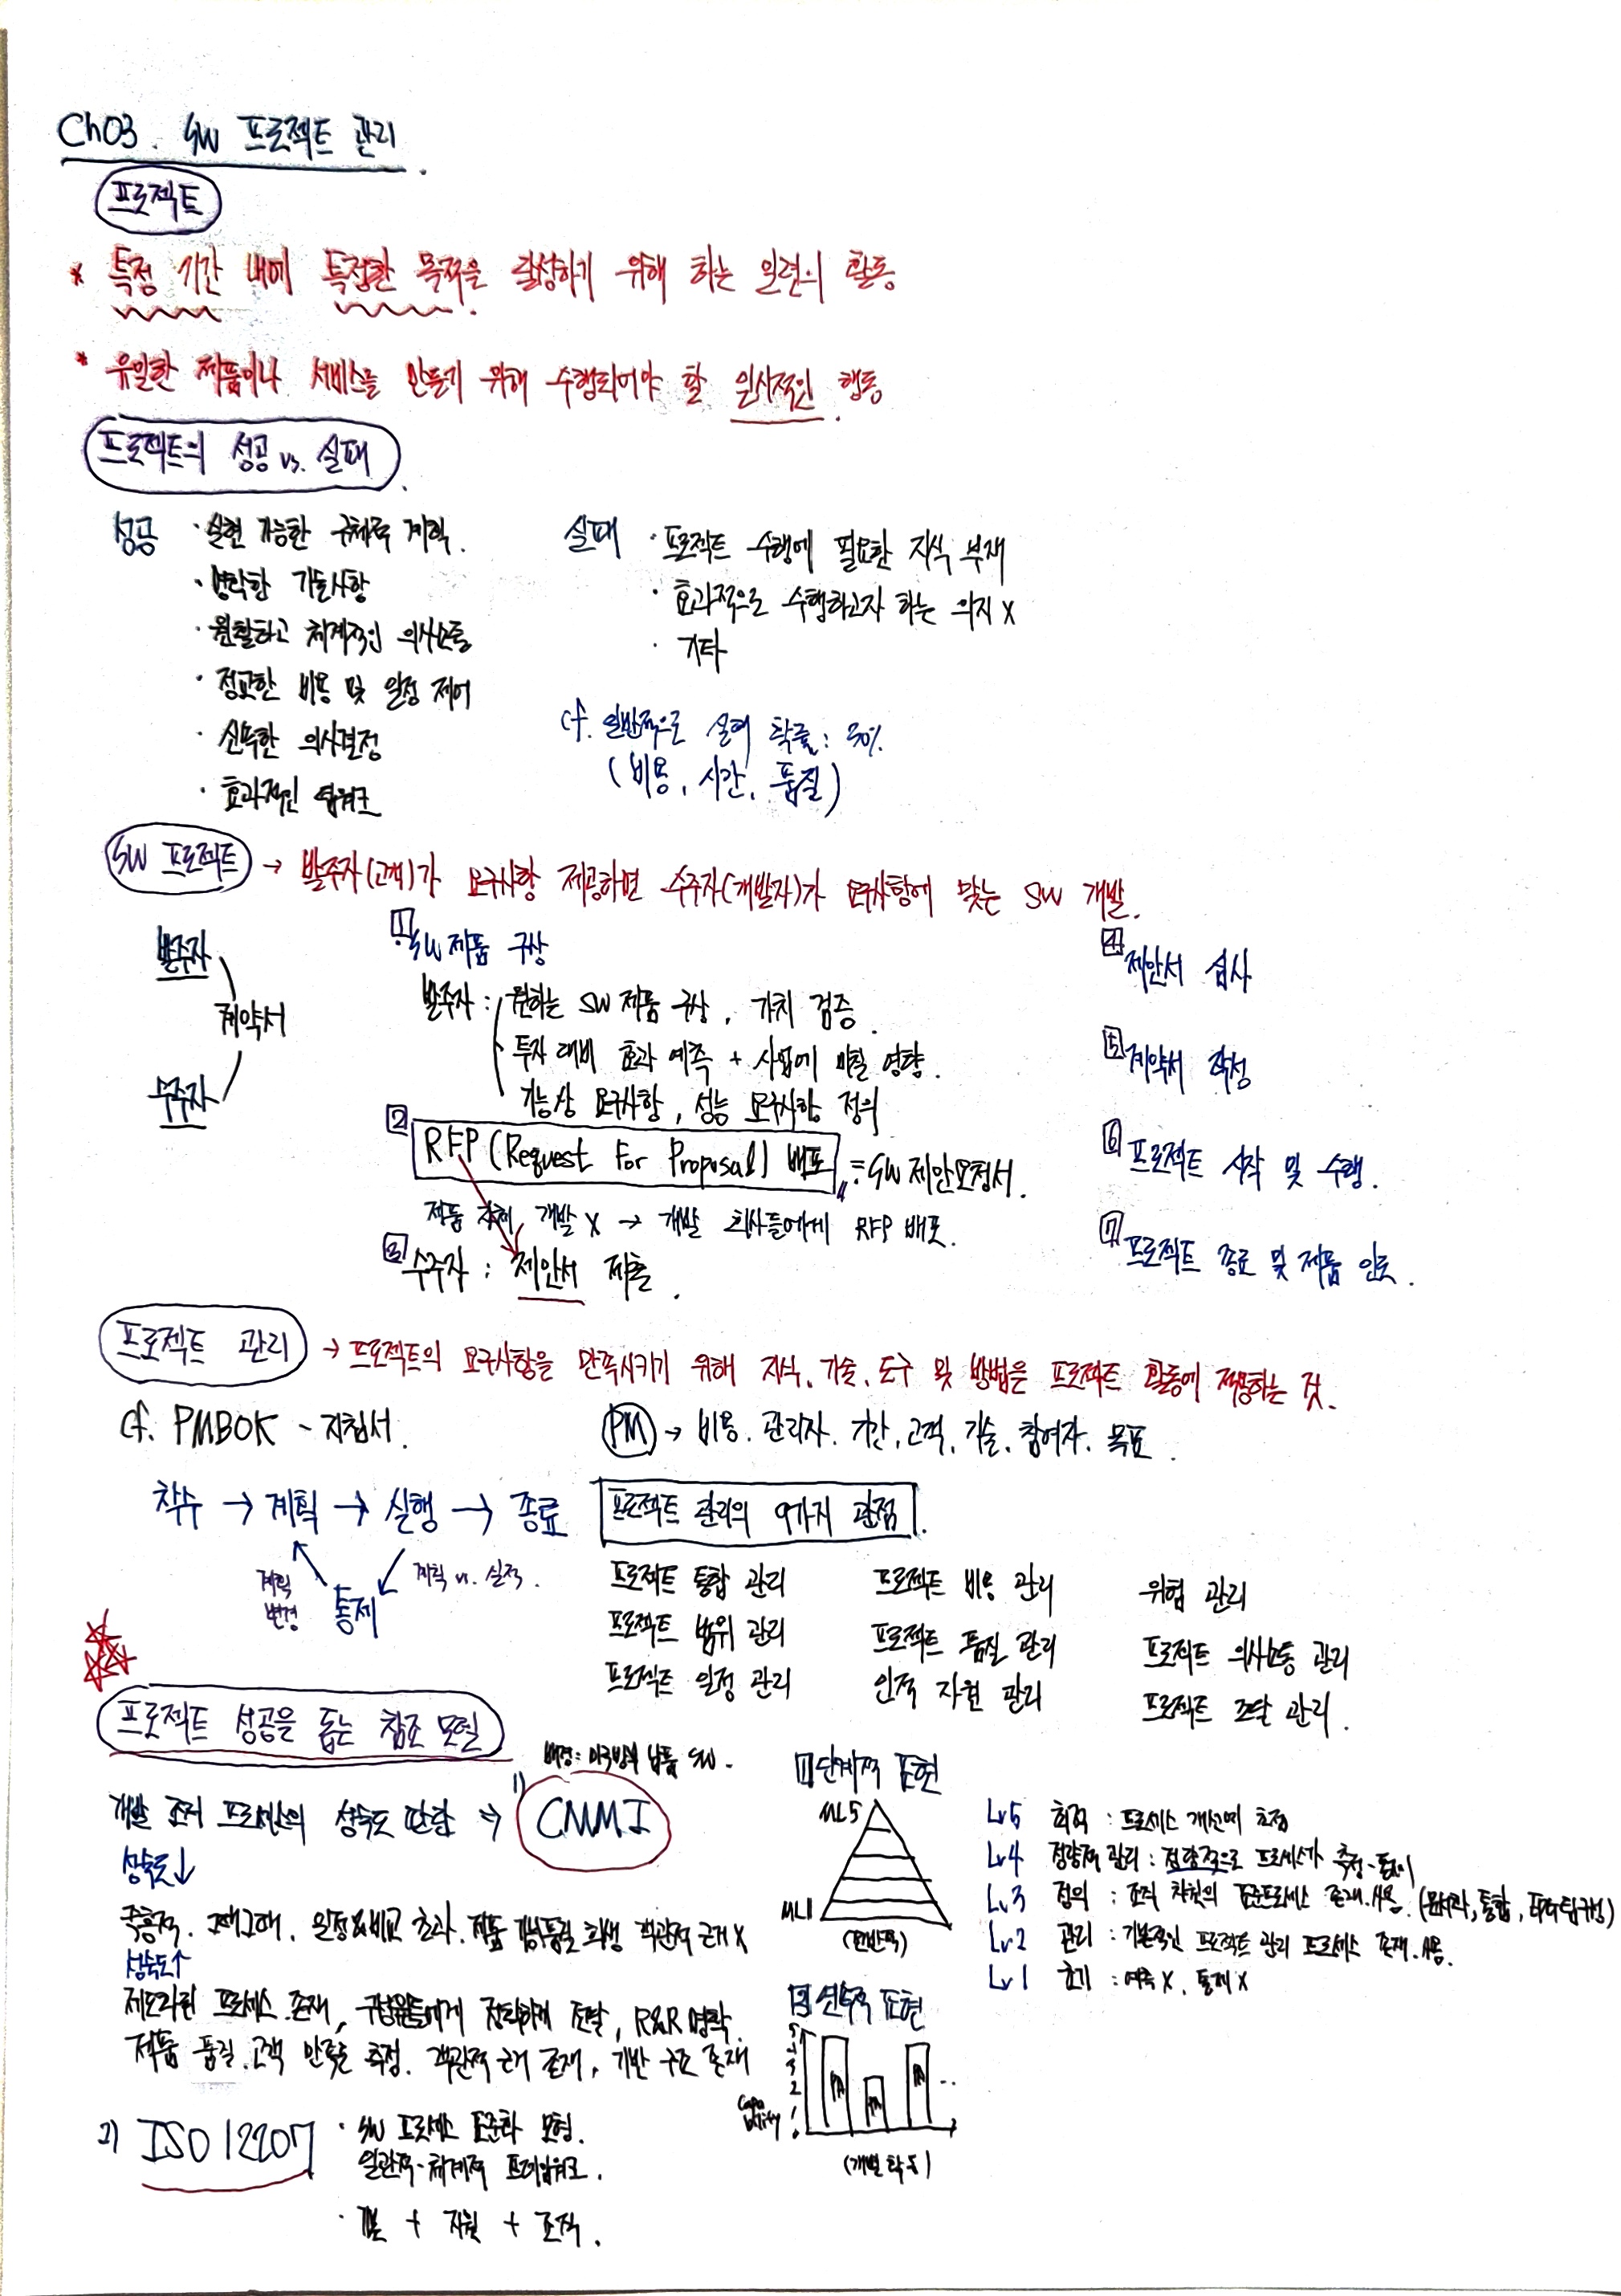 Ch03. SW 프로젝트 관리
프로젝트
* 특정 기간 내에 특정한 목적을 달성하기 위해 하는 일련의 활동
* 유일한 제품이나 서비스를 만들기 위해 수행되어야 할 일시적인 행동
프로젝트의 성공 vs. 실패
성공 · 실현 가능한 구체적 계획.
· 명확한 기술사항
· 원활하고 체계적인 의사소통
· 정교한 비용 및 일정 제어
· 신속한 의사결정
· 효과적인 팀워크
실패 · 프로젝트 수행에 필요한 지식 부재
· 효과적으로 수행하고자 하는 의지 X
· 기타
cf. 일반적으로 실패 확률: 30%
(비용, 시간, 품질)
SW 프로젝트 → 발주자(고객)가 요구사항 제공하면 수주자(개발자)가 요구사항에 맞는 SW 개발.
발주자
계약서
수주자
1 SW 제품 구상
발주자 : 원하는 SW 제품 구상, 가치 검증.
투자 대비 효과 예측 + 사업에 미칠 영향.
기능상 요구사항, 성능 요구사항 정의
2 RFP (Request For Proposal) 배포 = SW 제안요청서.
제품 자체 개발 X → 개발 회사들에게 RFP 배포.
3 수주자 : 제안서 제출.
4 제안서 심사
5 계약서 작성
6 프로젝트 시작 및 수행.
7 프로젝트 종료 및 제품 인도.
프로젝트 관리 → 프로젝트의 요구사항을 만족시키기 위해 지식, 기술, 도구 및 방법을 프로젝트 활동에 적용하는 것.
cf. PMBOK - 지침서.
PM → 비용. 관리자. 기간, 고객, 기술, 참여자. 목표.
착수 → 계획 → 실행 → 종료
계획 변경
통제
계획 vs. 실적.
프로젝트 관리의 9가지 관점.
프로젝트 통합 관리 프로젝트 비용 관리 위험 관리
프로젝트 범위 관리 프로젝트 품질 관리 프로젝트 의사소통 관리
프로젝트 일정 관리 인적 자원 관리 프로젝트 조달 관리.
프로젝트 성공을 돕는 참조 모델
배경: 미국방부 납품 SW.
개발 조직 프로세스의 성숙도 판단 ⇒ 1) CMMI
성숙도↓
즉흥적. 그때그때. 일정&비교 초과. 제품 품질 희생 객관적 근거 X
성숙도↑
제도화된 프로세스 존재, 구성원들에게 정확하게 전달, R&R 명확.
제품 품질. 고객 만족도 측정. 객관적 근거 존재, 기반 구조 존재
1 단계적 표현
ML5
ML1
(일반적)
Lv5 최적 : 프로세스 개선에 초점
Lv4 정량적 관리 : 정량적으로 프로세스가 측정-통제
Lv3 정의 : 조직 차원의 표준프로세스 존재.사용. (문서화, 통합,
Lv2 관리 : 기본적인 프로젝트 관리 프로세스 존재.사용.
Lv1 초기 : 예측 X, 통제 X
2 연속적 표현
5
4
3
2
1
0
Capability
PA PA PA ..
(개별 학습)
2) ISO 12207 · SW 프로세스 표준화 모형.
일관적-체계적 프레임워크.
· 기본 + 지원 + 조직.